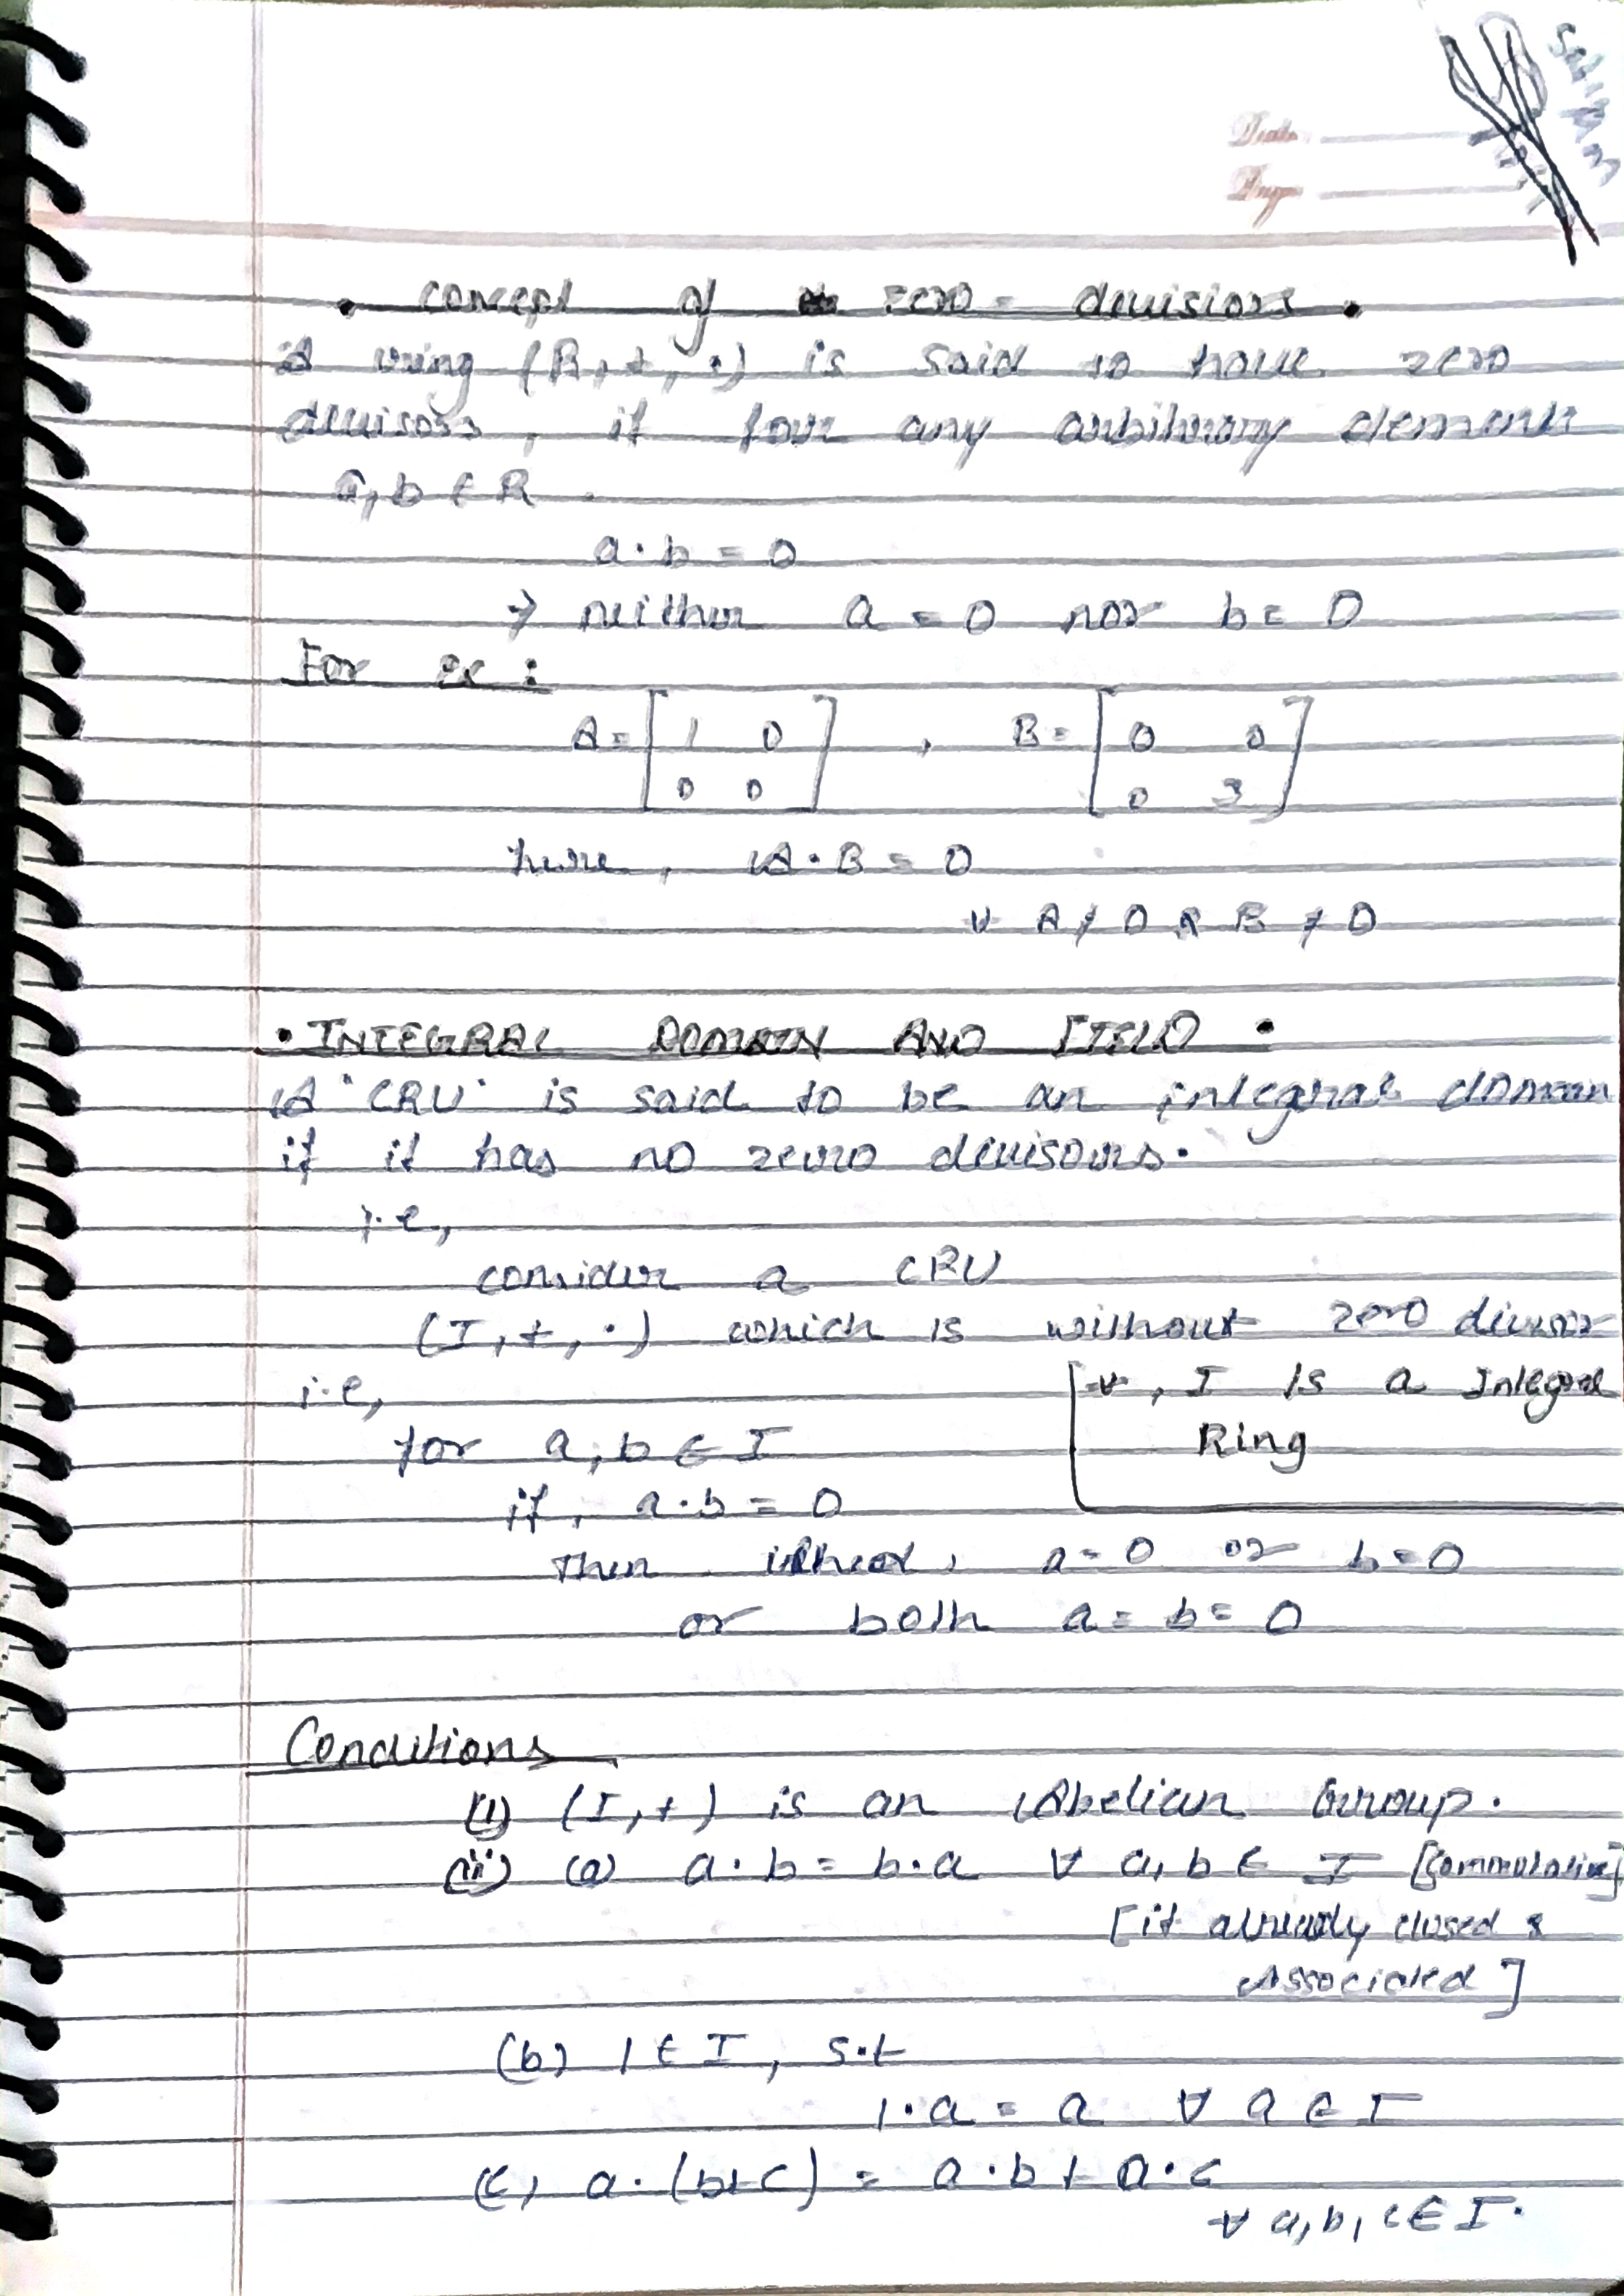 Date
Page
• concept of zero - divisiors •
A ring (R, +, •) is said to have zero
divisors, if for any arbitrary elements
a, b ∈ R.
a • b = 0
⇒ neither a = 0 nor b = 0
For ex :
A = [ 1 0 ] , B = [ 0 0 ]
0 0 0 3
here, A • B = 0
∀ A ≠ 0 & B ≠ 0
• INTEGRAL DOMAIN AND FIELD •
A 'CRU' is said to be an integral domain
if it has no zero divisors.
i.e,
consider a CRU
(I, +, •) which is without zero divisor
i.e, [∀, I is a Integral
Ring
for a, b ∈ I
if, a • b = 0
Then a = 0 or b = 0
or both a = b = 0
Conditions
(i) (I, +) is an Abelian Group.
(ii) (a) a • b = b • a ∀ a, b ∈ I [Commutative]
[it already closed &
Associated]
(b) 1 ∈ I, s.t
1 • a = a ∀ a ∈ I
(c) a • (b+c) = a • b + a • c
∀ a, b, c ∈ I.